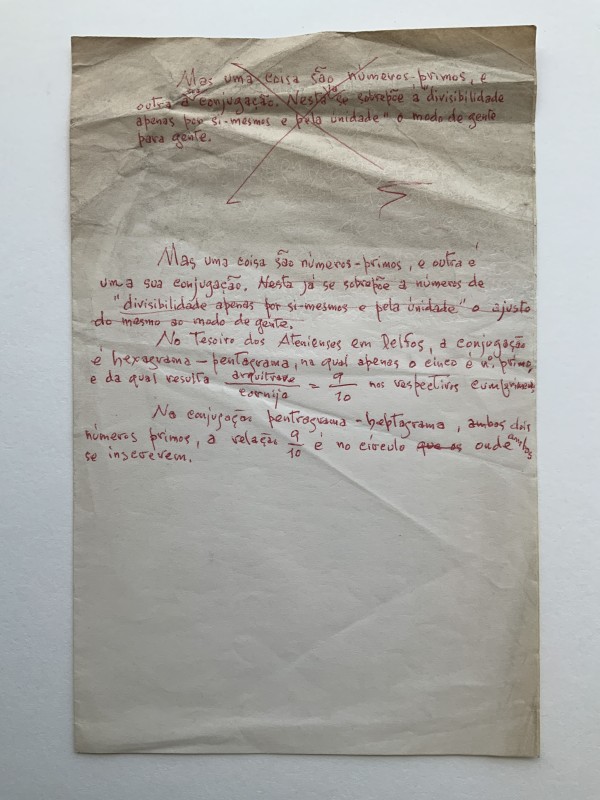 Mas uma coisa são números-primos, e
outra a sua conjugação. Nesta já se sobrepõe à "divisibilidade
apenas por si-mesmos e pela unidade" o modo de gente
para gente.
Mas uma coisa são números-primos, e outra é
uma sua conjugação. Nesta já se sobrepõe a números de
"divisibilidade apenas por si-mesmos e pela unidade" o ajusto
do mesmo ao modo de gente.
No Tesoiro dos Atenienses em Delfos, a conjugação
é hexagrama-pentagrama, na qual apenas o cinco é nº primo,
e da qual resulta arquitrave/cornija = 9/10 nos respectivos
Na conjugação pentagrama-heptagrama, ambos dois
números primos, a relação 9/10 é no círculo que os onde ambos
se inscrevem.